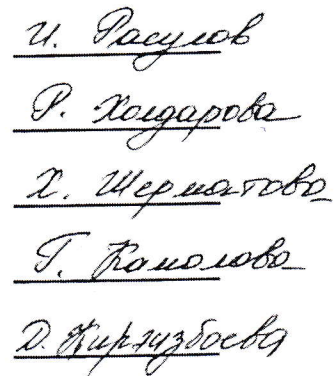 И. Расулов
Р. Холдарова
Х. Шерматова
Г. Камолова
Д. Киргизбоева